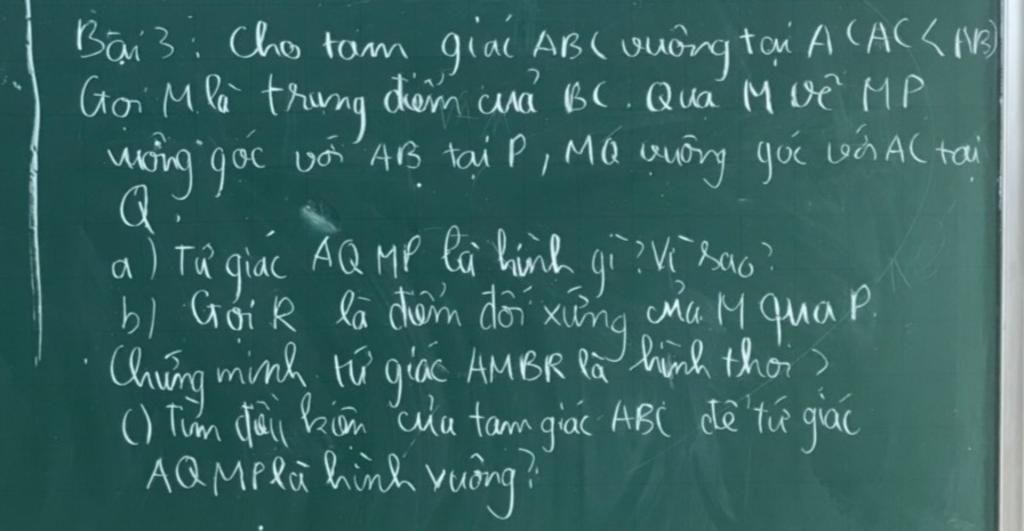 Bài 3: Cho tam giác ABC vuông tại A (AC < AB)
Gọi M là trung điểm của BC. Qua M vẽ MP
vuông góc với AB tại P, MQ vuông góc với AC tại
Q.
a) Tứ giác AQMP là hình gì? Vì sao?
b) Gọi R là điểm đối xứng của M qua P.
Chứng minh tứ giác AMBR là hình thoi?
c) Tìm điều kiện của tam giác ABC để tứ giác
AQMP là hình vuông?